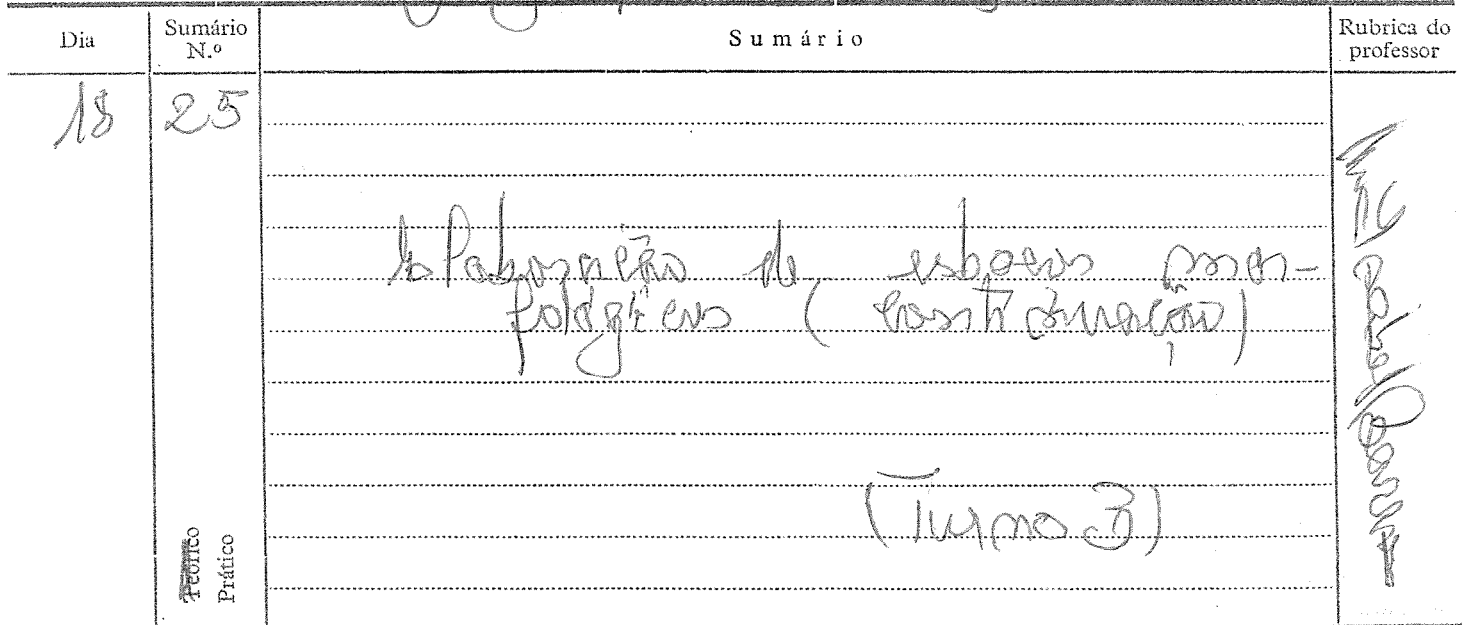 Dia
Sumário N.º
Sumário
Rubrica do professor
18
25
Elaboração de esboços mor-
fológicos (continuação)
(Turno 3)
Teórico
Prático